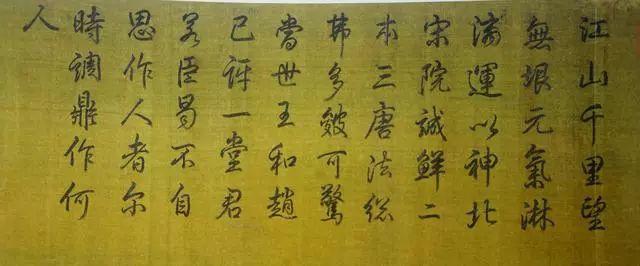 江山千里望
無垠元氣淋
漓運以神北
宋院誠鮮二
本三唐法総
弗多皴可驚
當世王和趙
已訝一堂君
若臣曷不自
思作人者尔
時調鼎作何
人